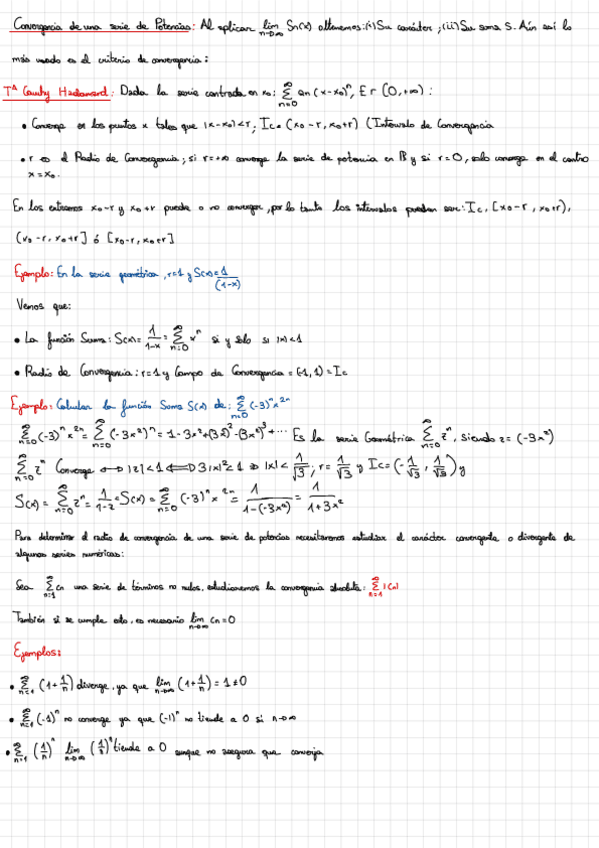 Convergencia de una serie de Potencias: Al aplicar lim n→∞ Sn(x) obtenemos: (i) Su carácter, (ii) Su suma S. Aún así lo
más usado es el criterio de convergencia:
Tª Cauchy Hadamard: Dada la serie centrada en x₀: ∑ n=0 ∞ an (x-x₀)ⁿ, ∃ r [0,+∞) :
• Converge en los puntos x tales que |x-x₀|<r; Ic = (x₀-r, x₀+r) (Intervalo de Convergencia
• r es el Radio de Convergencia; si r=+∞ converge la serie de potencia en ℝ y si r=0, solo converge en el centro
x=x₀.
En los extremos x₀-r y x₀+r puede o no converger, por lo tanto los intervalos pueden ser: Ic, [x₀-r, x₀+r),
(x₀-r, x₀+r] ó [x₀-r, x₀+r]
Ejemplo: En la serie geométrica, r=1 y S(x)=1/(1-x)
Vemos que:
• La función Suma: S(x)= 1/(1-x) = ∑ n=0 ∞ xⁿ si y sólo si |x|<1
• Radio de Convergencia: r=1 y Campo de Convergencia = (-1,1) = Ic
Ejemplo: Calcular la función Suma S(x) de: ∑ n=0 ∞ (-3)ⁿ x²ⁿ
∑ n=0 ∞ (-3)ⁿ x²ⁿ = ∑ n=0 ∞ (-3x²)ⁿ = 1-3x²+(3x²)²-(3x²)³+··· Es la serie Geométrica ∑ n=0 ∞ zⁿ, siendo z = (-3x²)
∑ n=0 ∞ zⁿ Converge ⇔ |z|<1 ⇔ 3|x|²<1 ⇒ |x|< 1/√3, r= 1/√3 y Ic=(-1/√3, 1/√3) y
S(x) = ∑ n=0 ∞ zⁿ = 1/(1-z) = S(x) = ∑ n=0 ∞ (-3)ⁿ x²ⁿ = 1/(1-(-3x²)) = 1/(1+3x²)
Para determinar el radio de convergencia de una serie de potencias necesitaremos estudiar el carácter convergente o divergente de
algunas series numéricas:
Sea ∑ n=1 ∞ cn una serie de términos no nulos, estudiaremos la convergencia absoluta: ∑ n=1 ∞ |Cn|
También si se cumple esto, es necesario lim n→∞ cn=0
Ejemplos:
• ∑ n=1 ∞ (1+1/n) diverge, ya que lim n→∞ (1+1/n) = 1≠0
• ∑ n=1 ∞ (-1)ⁿ no converge ya que (-1)ⁿ no tiende a 0 si n→∞
• ∑ n=1 ∞ (1/n)ⁿ lim n→∞ tiende a 0 aunque no asegura que converja